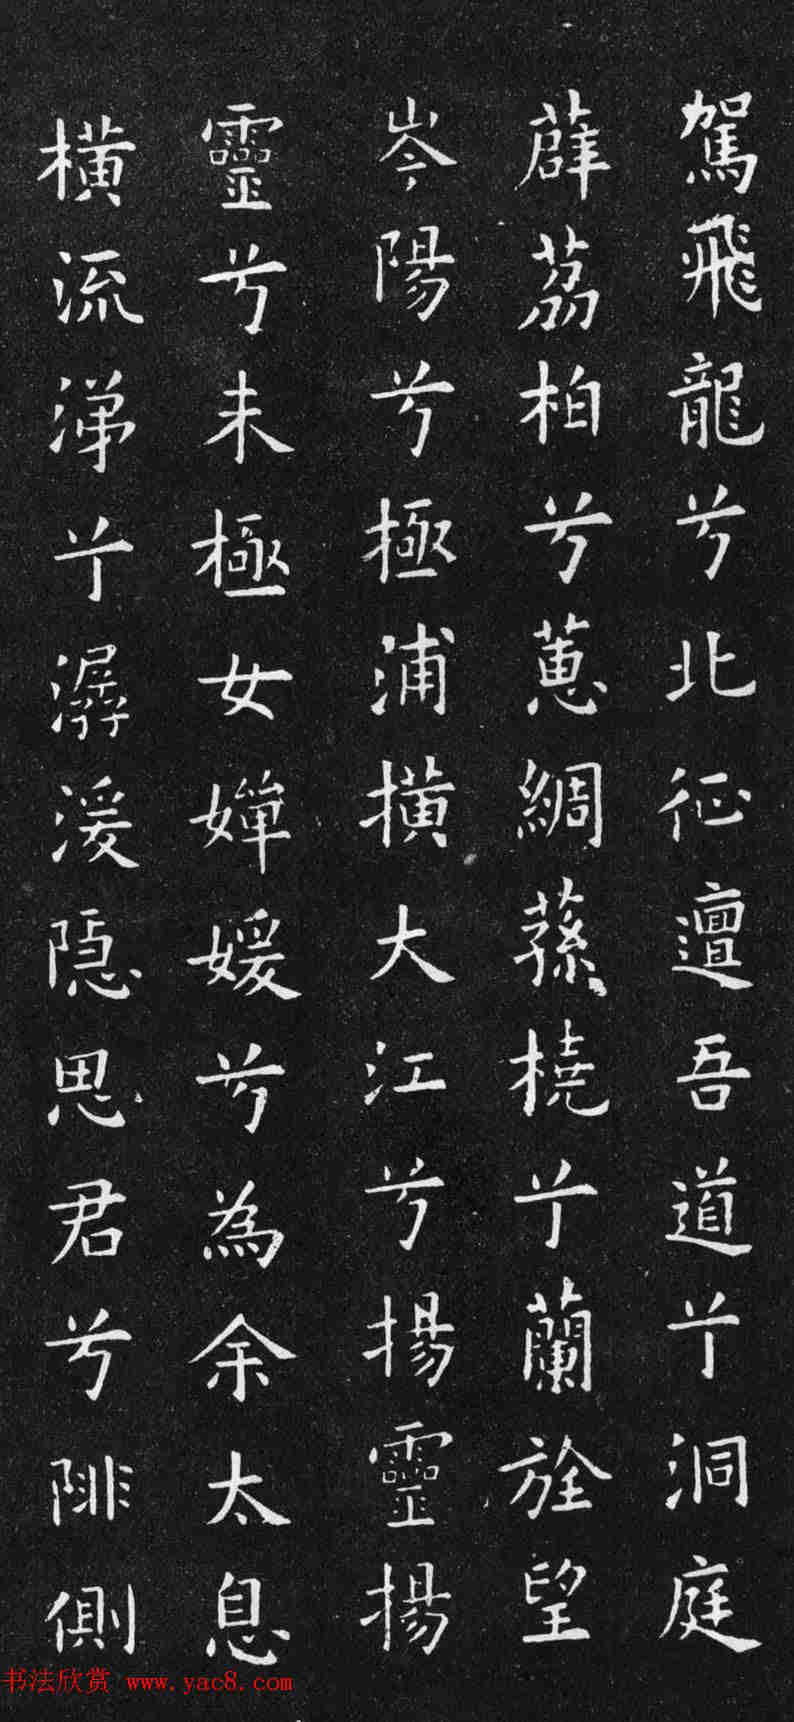 駕飛龍兮北征邅吾道兮洞庭
薜荔柏兮蕙綢蓀橈兮蘭旌望
岑陽兮極浦横大江兮揚靈揚
靈兮未極女嬋媛兮為余太息
橫流涕兮潺湲隱思君兮陫側
书法欣赏 www.yac8.com